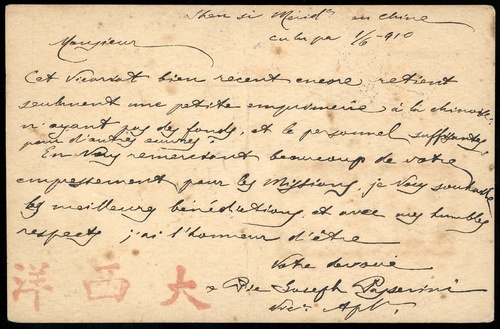 Shen si Mérid.ˡᵉ en Chine
culupa 1/6-910
Monsieur
Cet Vicariat bien recent encore retient
seulement une petite imprimerie à la chinoise
n'ayant pas des fonds, et le personnel suffisantes
pour d'autres œuvres.
En Vous remerciant beaucoup de votre
empressement pour les Missions, je Vous souhaite
les meilleures bénédictions, et avec mes humbles
respects j'ai l'honneur d'être
Votre devoué
Joseph Passerini
Vic. Apl.
大西洋